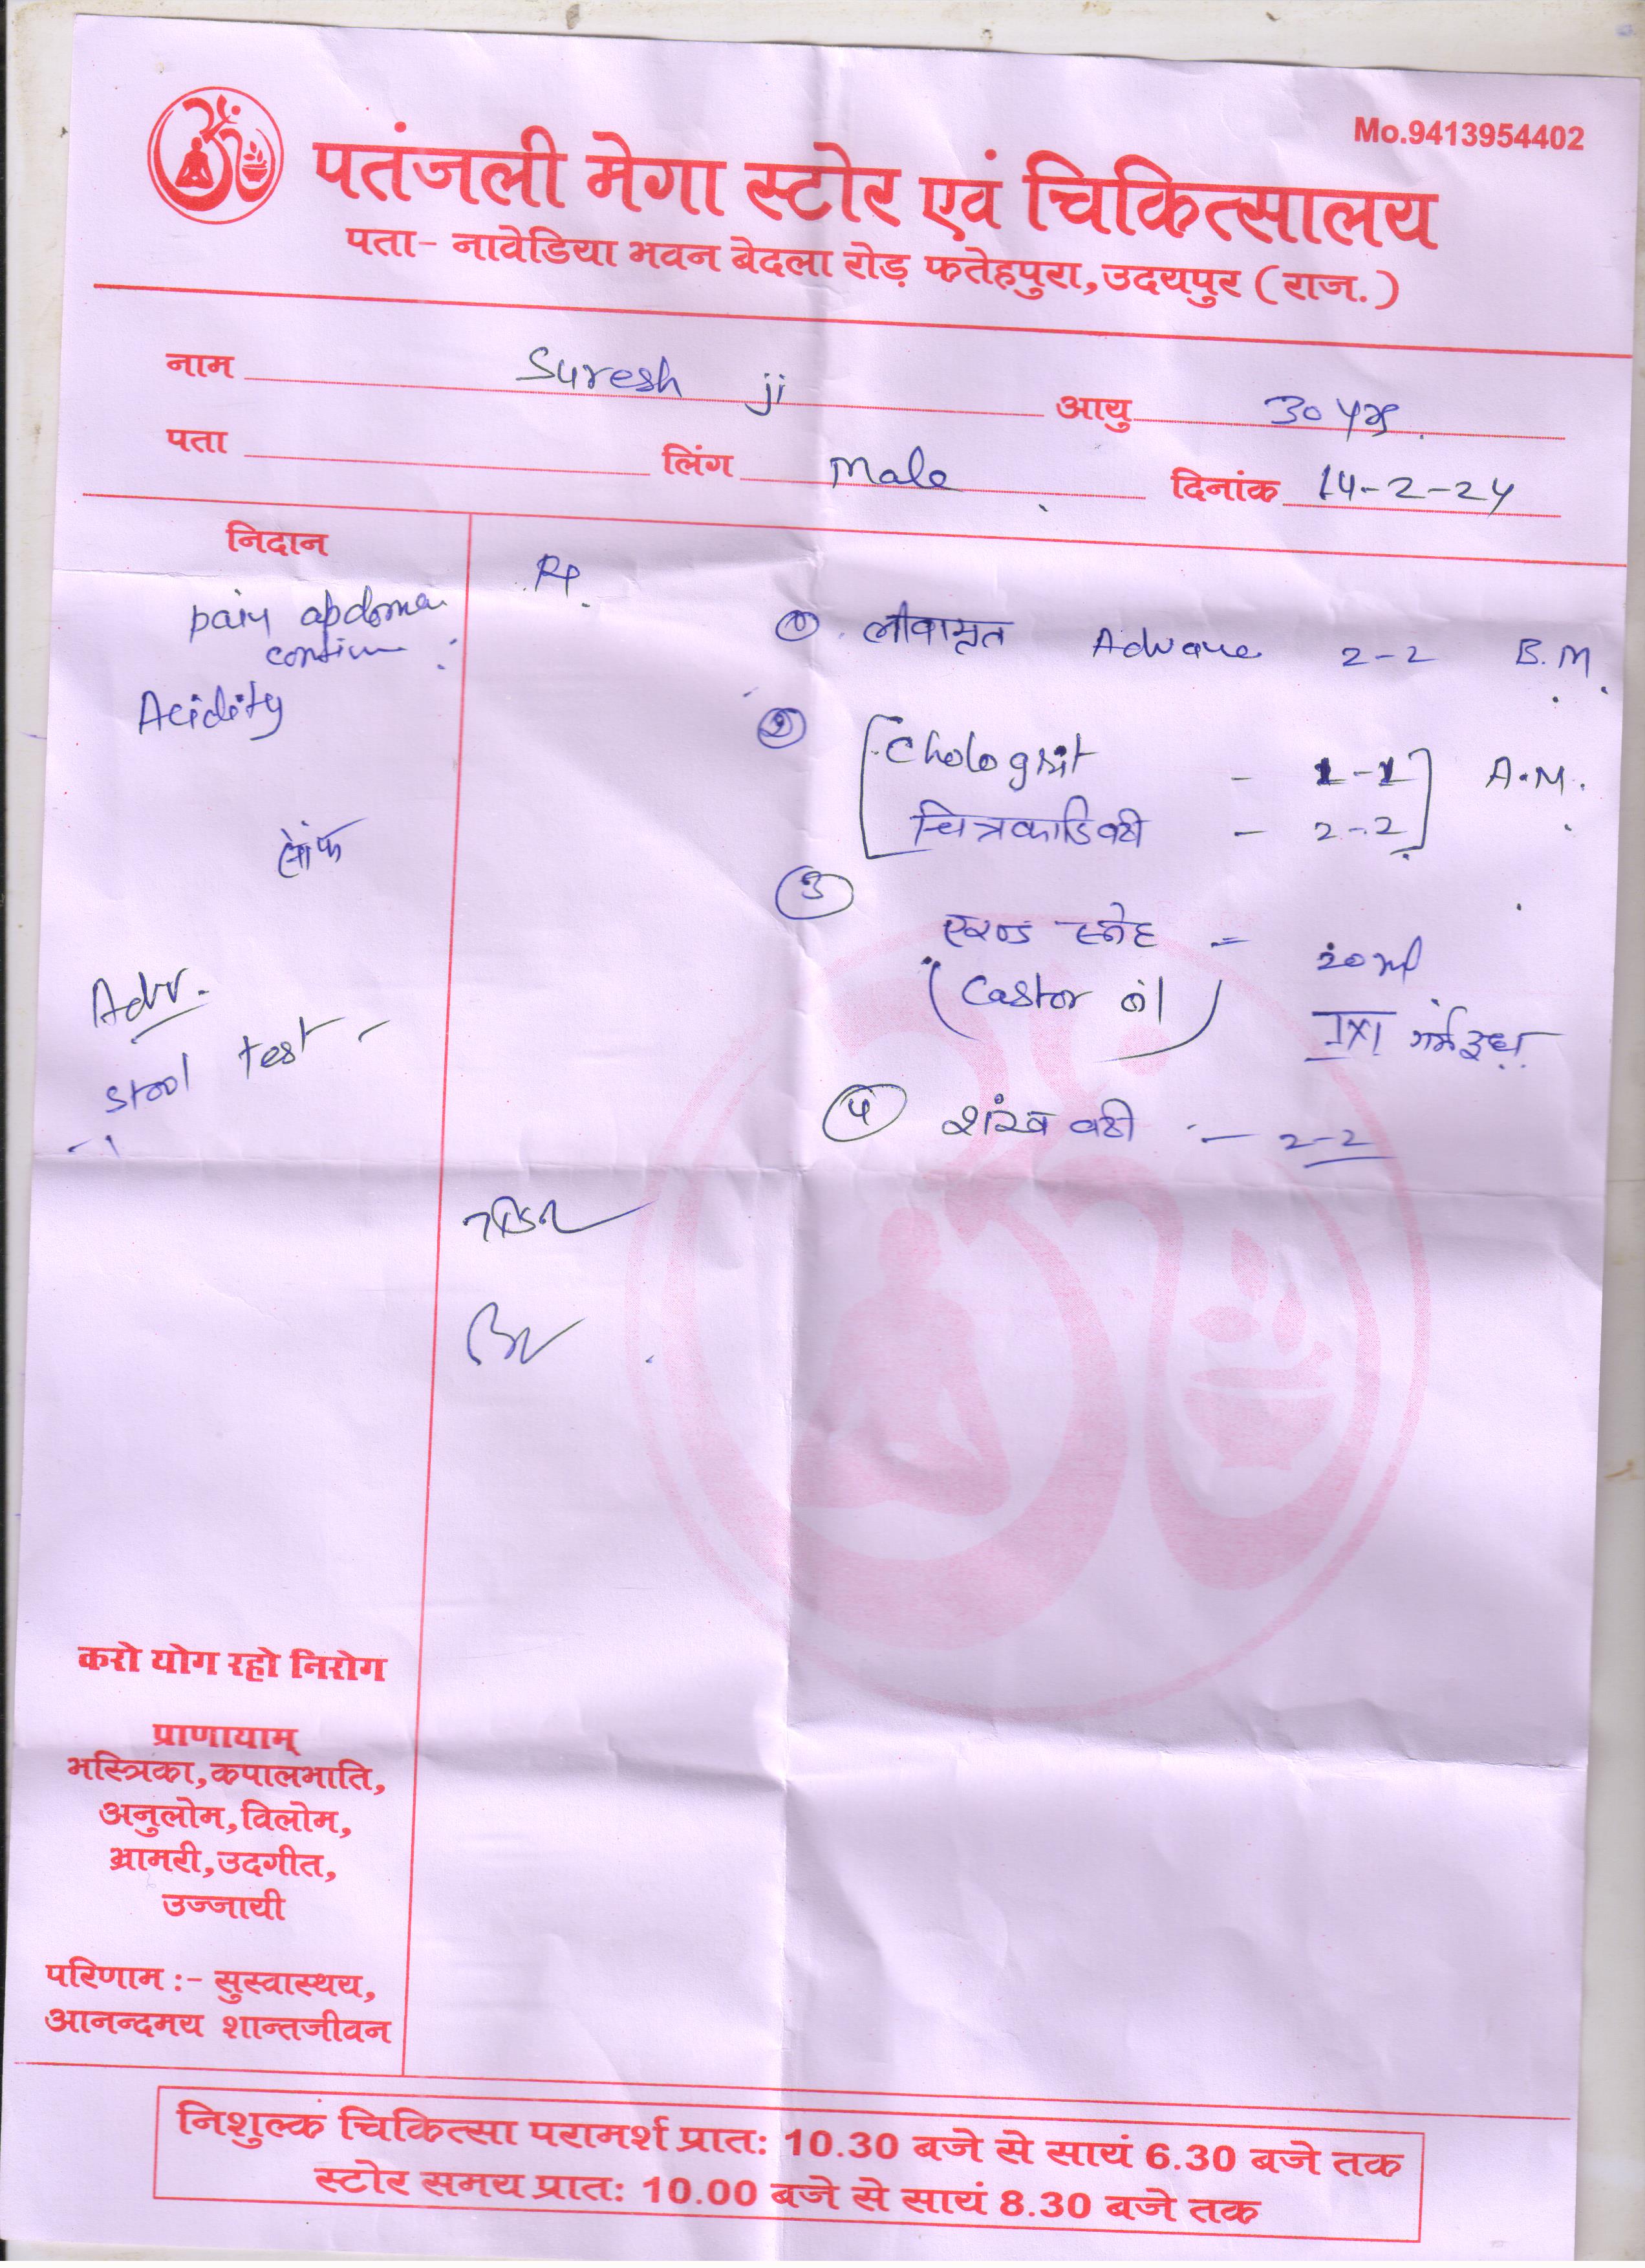 Mo.9413954402
पतंजली मेगा स्टोर एवं चिकित्सालय
पता- नावेडिया भवन बेदला रोड़ फतेहपुरा,उदयपुर (राज.)
नाम Suresh ji आयु 30 yrs.
पता लिंग Male दिनांक 14-2-24
निदान
pain abdomen
Acidity
सौंफ
Adv.
stool test -
Rp.
① लीवामृत Advance 2-2 B.M.
② Chologrit - 1-1 A.M.
चित्रकादिवटी - 2-2
③
एरण्ड स्नेह = 20 ml
(Castor oil) 1x1 गर्म दूध
④ शंख वटी - 2-2
करो योग रहो निरोग
प्राणायाम्
भस्त्रिका,कपालभाति,
अनुलोम,विलोम,
भ्रामरी,उदगीत,
उज्जायी
परिणाम :- सुस्वास्थय,
आनन्दमय शान्तजीवन
निशुल्क चिकित्सा परामर्श प्रात: 10.30 बजे से सायं 6.30 बजे तक
स्टोर समय प्रात: 10.00 बजे से सायं 8.30 बजे तक